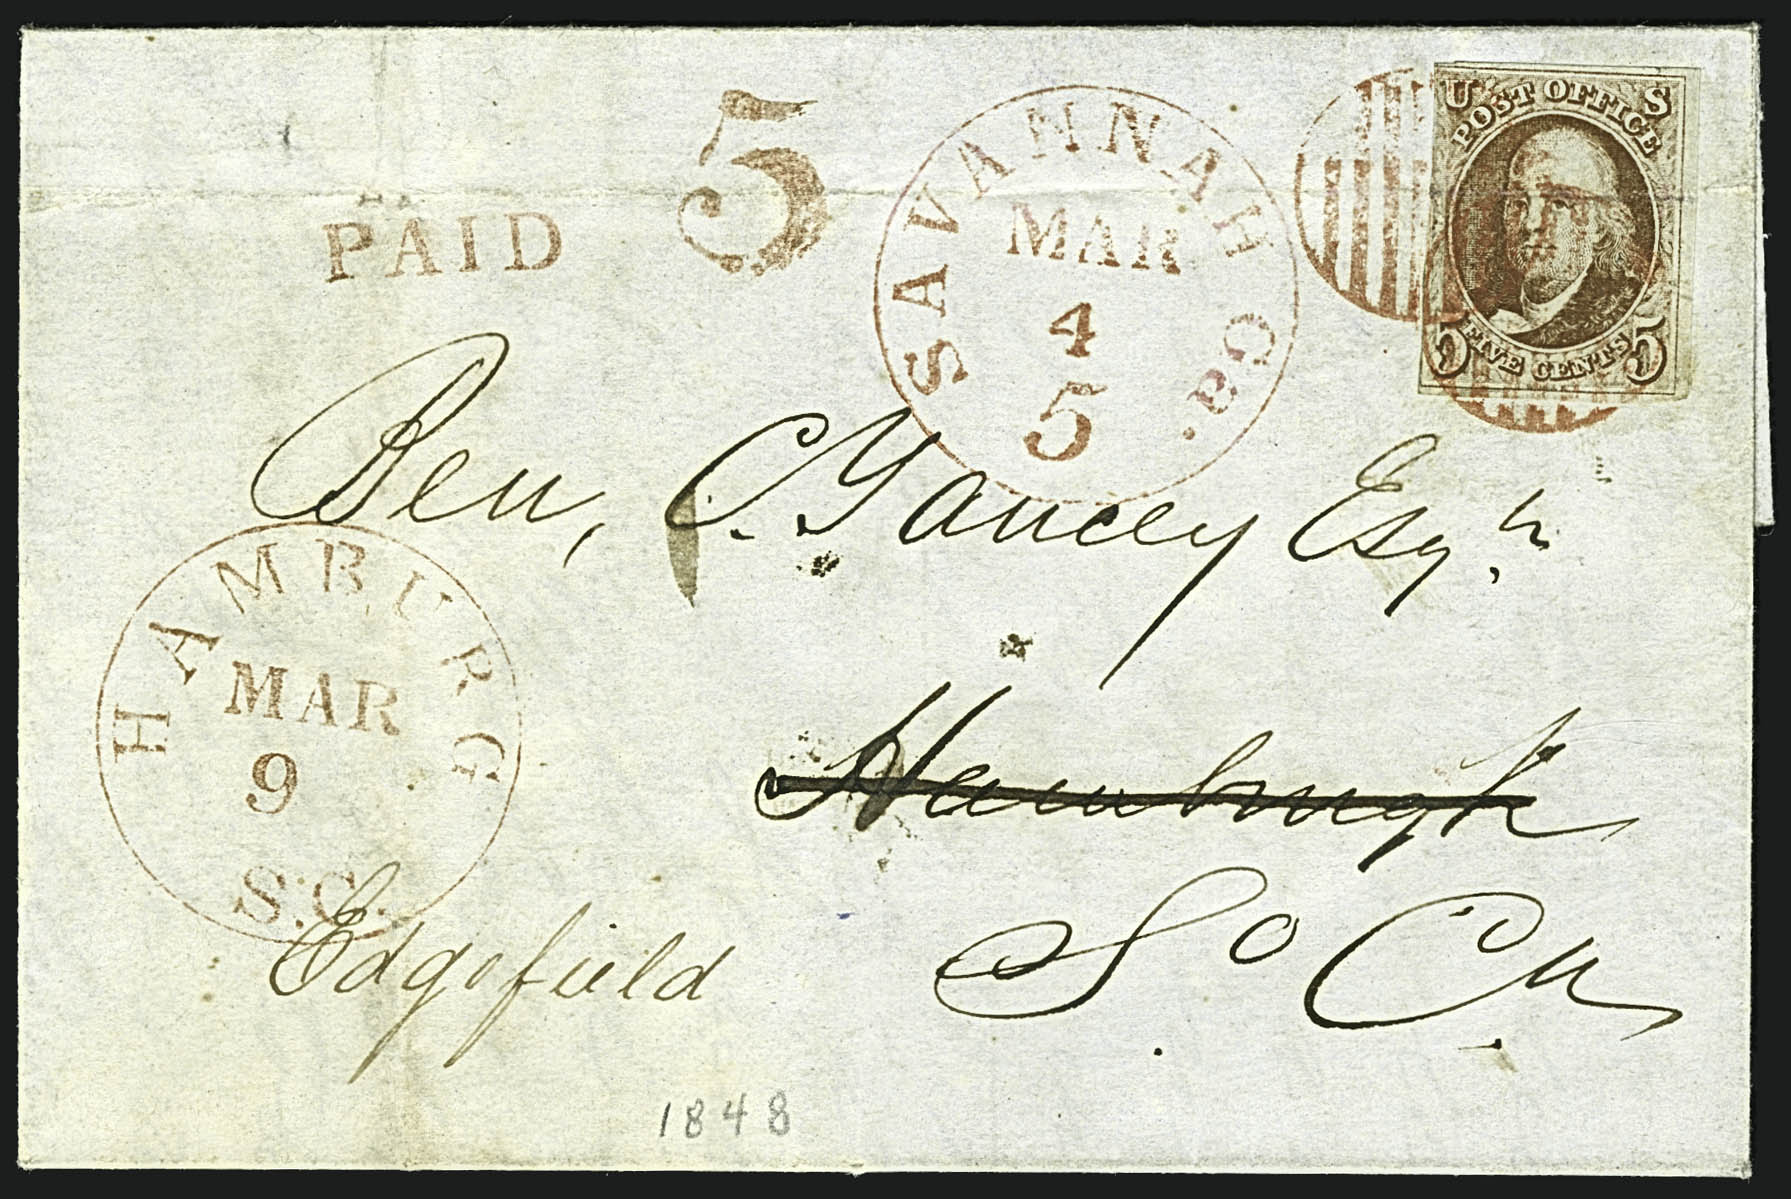 U S
POST OFFICE
5 FIVE CENTS 5
PAID
5
SAVANNAH Ga.
MAR
4
5
Ben, C. Yancey Esqr.
Hamburgh
So Ca
HAMBURG
MAR
9
S.C.
Edgefield
1848